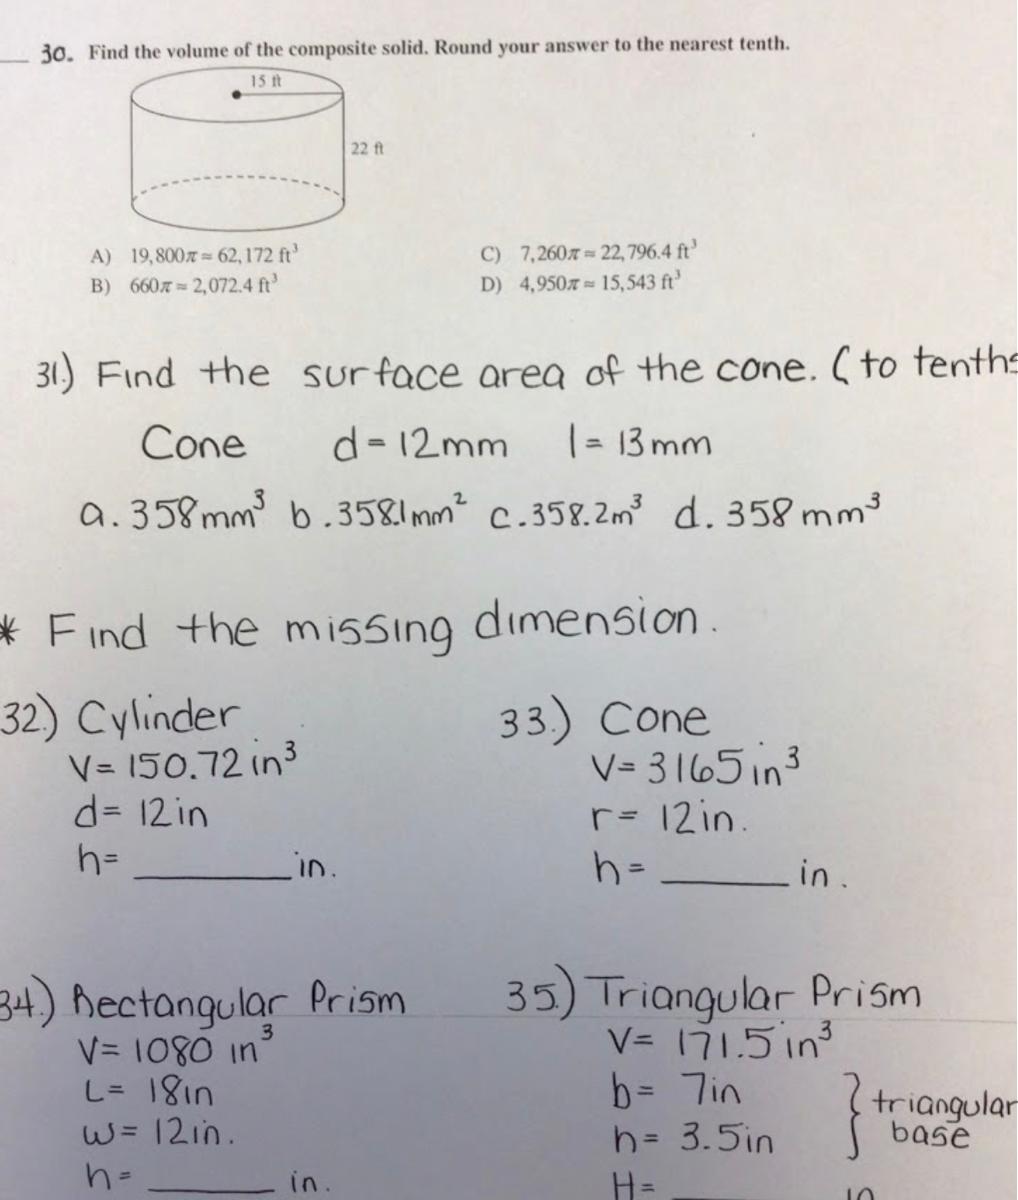 30. Find the volume of the composite solid. Round your answer to the nearest tenth.
15 ft
22 ft
A) 19,800π ≈ 62,172 ft³
C) 7,260π ≈ 22,796.4 ft³
B) 660π ≈ 2,072.4 ft³
D) 4,950π ≈ 15,543 ft³
31.) Find the surface area of the cone. (to tenths
Cone d = 12mm l = 13mm
a. 358mm³ b. 358.1mm² c. 358.2m³ d. 358mm³
* Find the missing dimension.
32.) Cylinder
V = 150.72 in³
d = 12 in
h = ______ in.
33.) Cone
V = 3165 in³
r = 12in.
h = ______ in.
34.) Rectangular Prism
V = 1080 in³
L = 18in
w = 12in.
h = ______ in.
35.) Triangular Prism
V = 171.5 in³
b = 7in
h = 3.5in
} triangular
base
H = ______ in